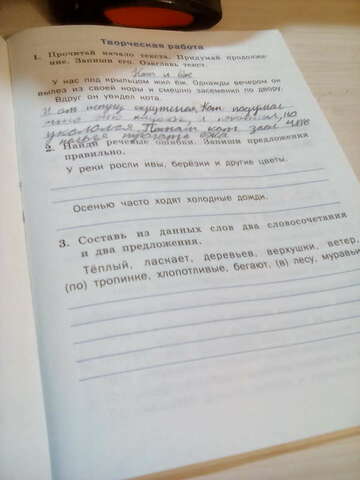 Творческая работа
1. Прочитай начало текста. Придумай продолже-
ние. Запиши его. Озаглавь текст.
Кот и ёж
У нас под крыльцом жил ёж. Однажды вечером он
вылез из своей норы и смешно засеменил по двору.
Вдруг он увидел кота.
И от испугу скрутился. Кот подумал
что это клубок, и покатил, но
укололся. Потом кот знал что
нельзя трогать ежа
2. Найди речевые ошибки. Запиши предложения
правильно.
У реки росли ивы, берёзки и другие цветы.
Осенью часто ходят холодные дожди.
3. Составь из данных слов два словосочетания
и два предложения.
Тёплый, ласкает, деревьев, верхушки, ветер,
(по) тропинке, хлопотливые, бегают, (в) лесу, муравьи